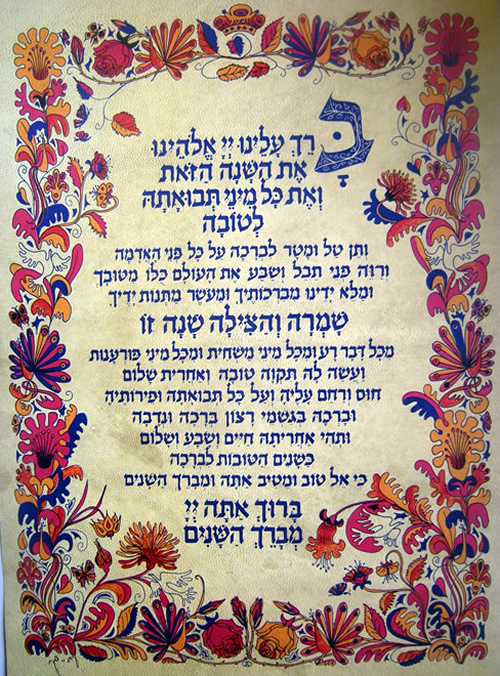 בָּרֵךְ עָלֵינוּ יְיָ אֱלֹהֵינוּ
אֶת הַשָּׁנָה הַזֹּאת
וְאֶת כָּל מִינֵי תְבוּאָתָהּ
לְטוֹבָה
ותן טל ומטר לברכה על כל פני האדמה
ורוה פני תבל ושבע את העולם כלו מטובך
ומלא ידינו מברכותיך ומעשר מתנות ידיך
שָׁמְרָה וְהַצִּילָה שָׁנָה זוֹ
מכל דבר רע ומכל מיני משחית ומכל מיני פורענות
ועשה לה תקוה טובה ואחרית שלום
חוס ורחם עליה ועל כל תבואתה ופירותיה
וברכה בגשמי רצון ברכה ונדבה
ותהי אחריתה חיים ושבע ושלום
כשנים הטובות לברכה
כי אל טוב ומטיב אתה ומברך השנים
בָּרוּךְ אַתָּה יְיָ
מְבָרֵךְ הַשָּׁנִים